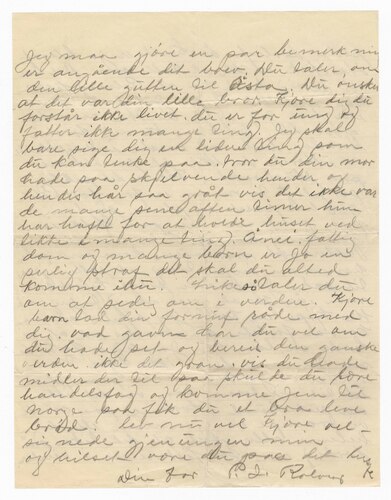 Jeg maa gjöre en par bemerknin
er angående dit brev. Du taler om
den lille gutten til Asta. Du önsker
at det var din lille bror. Kjære dig du
forstår ikke livet du er for ung og
fatter ikke mange ting. Jeg skal
bare sige dig en liden ting som
du kan tenke paa. tror du din mor
hade saa skjelvende hender og
hendis hår saa gråt vis det ikke var
de mange sene aften timer hun
har haft for at holde huset ved
like i mange ting. Å nei. fattig
dom og mange børn er jo en
straf det skal du altid
komme ihu. taler du
om at se dig om i verden. Kjære
barn tad din fornuf råde med
dig. vad gavn har du vel om
du hade set og bereist den ganske
verden. ikke det gran. vis du hade
midler der til saa skulde du lære
handelsfag og komme jem til
norge saa fik du et bra leve
bröd. lev nu vel Kjære vel
signede min
og hilset være du paa det
Din Far